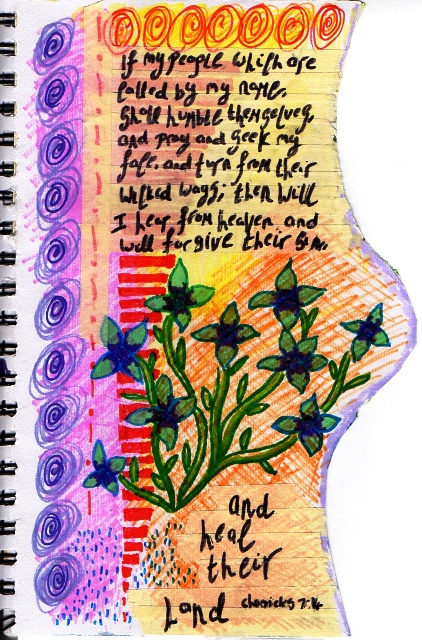 If my people which are
called by my name,
shall humble themselves,
and pray and seek my
face, and turn from their
wicked ways; then will
I hear from heaven and
will forgive their sin,
and
heal
their
Land
chronicles 7:14